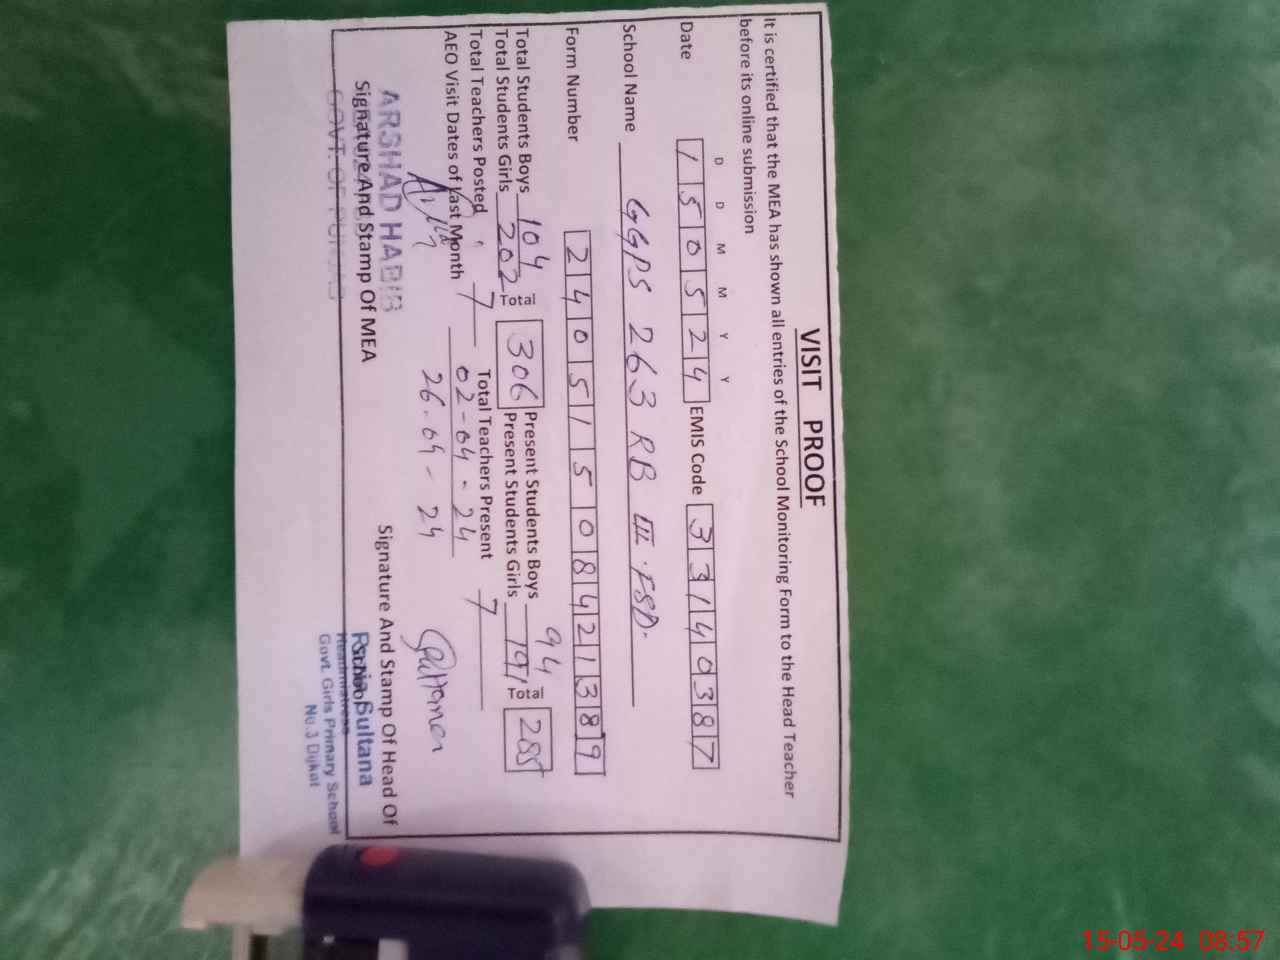 VISIT PROOF
It is certified that the MEA has shown all entries of the School Monitoring Form to the Head Teacher
before its online submission
D D M M Y Y
Date 1 5 0 5 2 4 EMIS Code 3 3 1 4 0 3 8 7
School Name GGPS 263 RB III FSD.
Form Number 2 4 0 5 1 5 0 8 4 2 1 3 8 9
Total Students Boys 104 Present Students Boys 94
Total 306 Total 285
Total Students Girls 202 Present Students Girls 191
Total Teachers Posted 7 Total Teachers Present 7
AEO Visit Dates of Last Month 02-04-24
26.04-24
ARSHAD HABIB
Signature And Stamp Of MEA
GOVT. OF PUNJAB
Signature And Stamp Of Head Of
School
Sultana
Headmistress
Govt. Girls Primary School
No.3 Dijkot
15-05-24 08:57